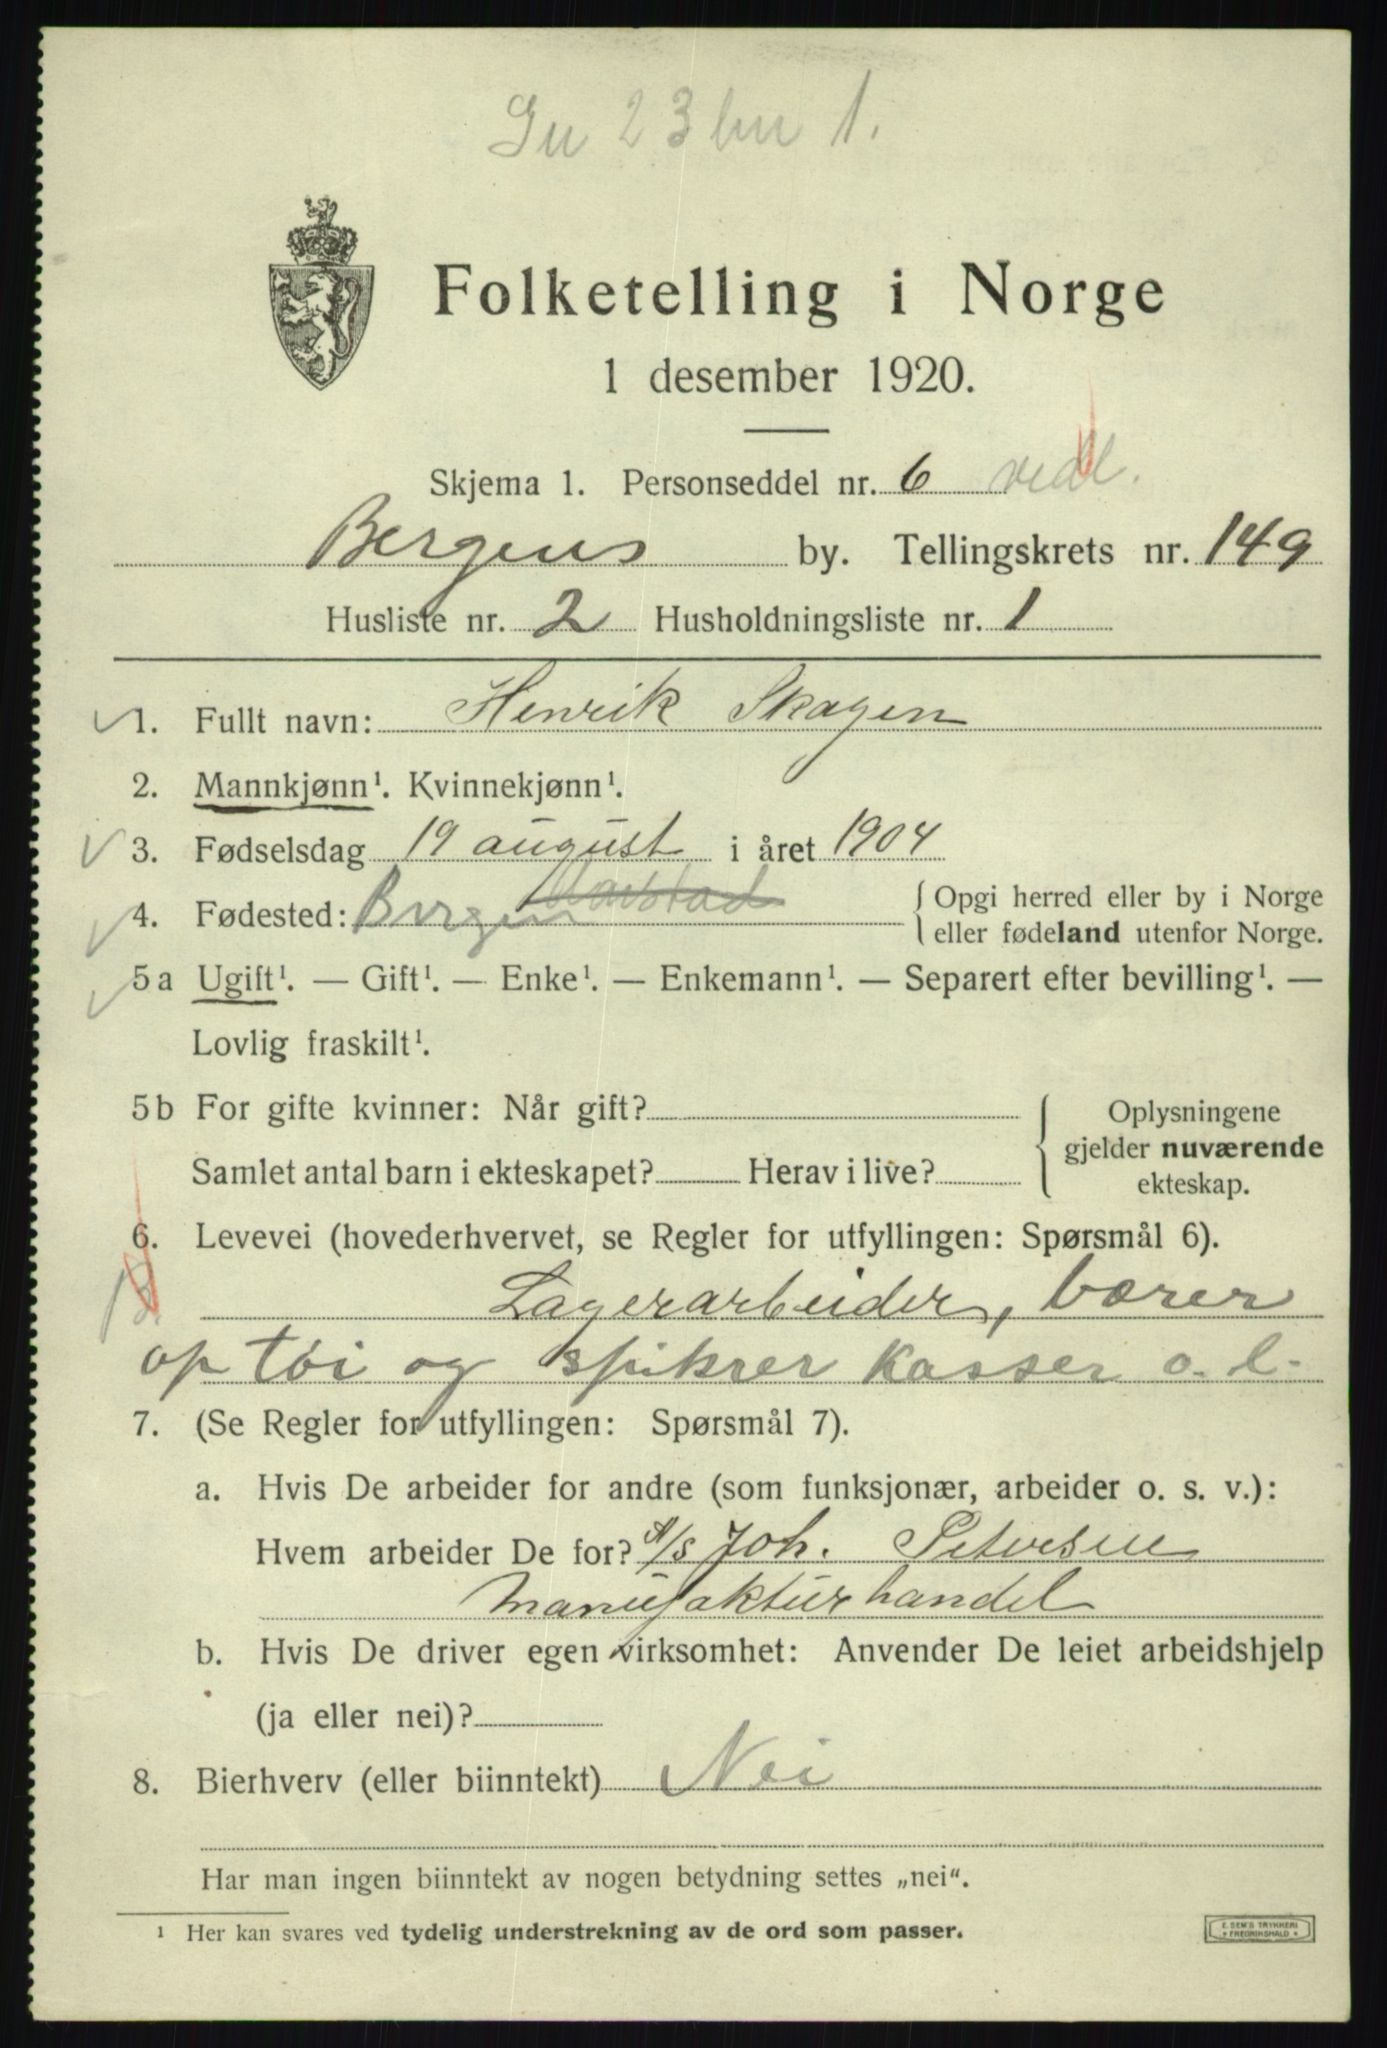 Gn 23 bn 1.
Folketelling i Norge
1 desember 1920.
Skjema 1. Personseddel nr. 6 vedl.
Bergens by. Tellingskrets nr. 149
Husliste nr. 2 Husholdningsliste nr. 1
1. Fullt navn: Henrik Skagen
2. Mannkjønn¹. Kvinnekjønn¹.
3. Fødselsdag 19 august i året 1904
4. Fødested: Bergen { Opgi herred eller by i Norge
eller fødeland utenfor Norge.
5a Ugift¹. — Gift¹. — Enke¹. — Enkemann¹. — Separert efter bevilling¹. —
Lovlig fraskilt¹.
5b For gifte kvinner: Når gift?
Samlet antal barn i ekteskapet? Herav i live?
{ Oplysningene
gjelder nuværende
ekteskap.
6. Levevei (hovederhvervet, se Regler for utfyllingen: Spørsmål 6).
Lagerarbeider, bærer
op tøi og spikrer kasser o. l.
7. (Se Regler for utfyllingen: Spørsmål 7).
a. Hvis De arbeider for andre (som funksjonær, arbeider o. s. v.):
Hvem arbeider De for? A/S Joh. Petersen
Manufakturhandel
b. Hvis De driver egen virksomhet: Anvender De leiet arbeidshjelp
(ja eller nei)?
8. Bierhverv (eller biinntekt) Nei
Har man ingen biinntekt av nogen betydning settes „nei".
¹ Her kan svares ved tydelig understrekning av de ord som passer.
E. SEM'S TRYKKERI
* FREDRIKSHALD *